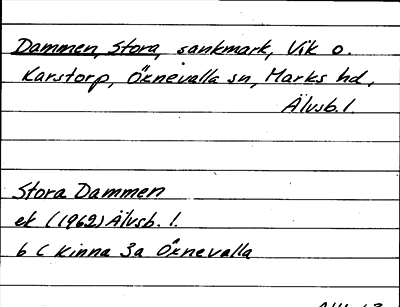 Dammen, Stora, sankmark, Vik o.
Karstorp, Öxnevalla sn, Marks hd,
Älvsb. l.
Stora Dammen
ek (1962) Älvsb. l.
6 C Kinna 3a Öxnevalla